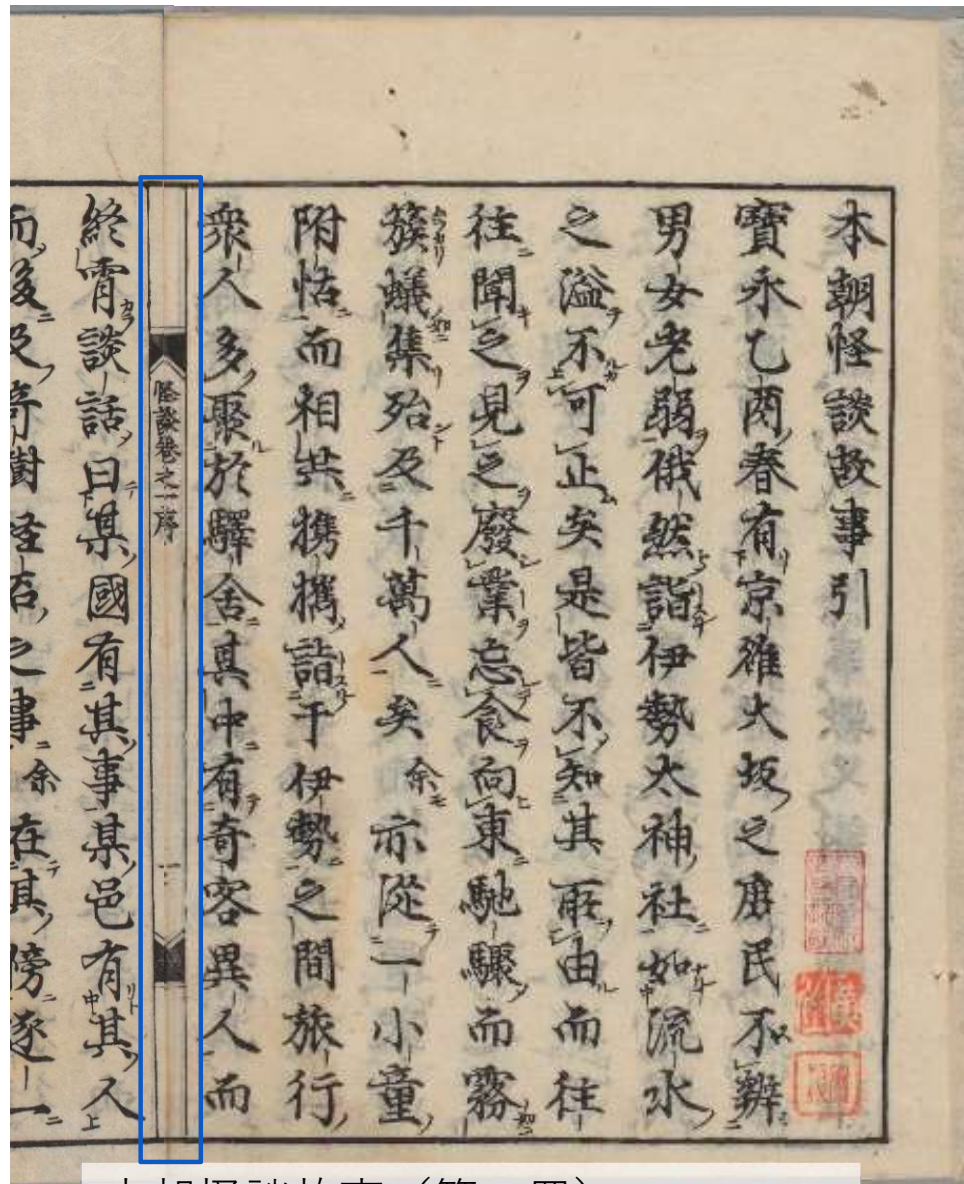 本朝怪談故事引
寶永乙酉春有京雒大坂之庶民不辨
男女老弱俄然詣伊勢太神社如流水
之溢不可止矣是皆不知其所由而往
往聞之見之廢業忘食向東馳驟而霧
簇蟻集殆及千萬人矣余亦從一小童
附怙而相共携攜詣于伊勢之間旅行
衆人多聚於驛舍其中有奇客異人而
怪談卷之一序 一
終宵談話曰某國有其事某邑有其人
而後及奇樹怪石之事余在其傍逐一